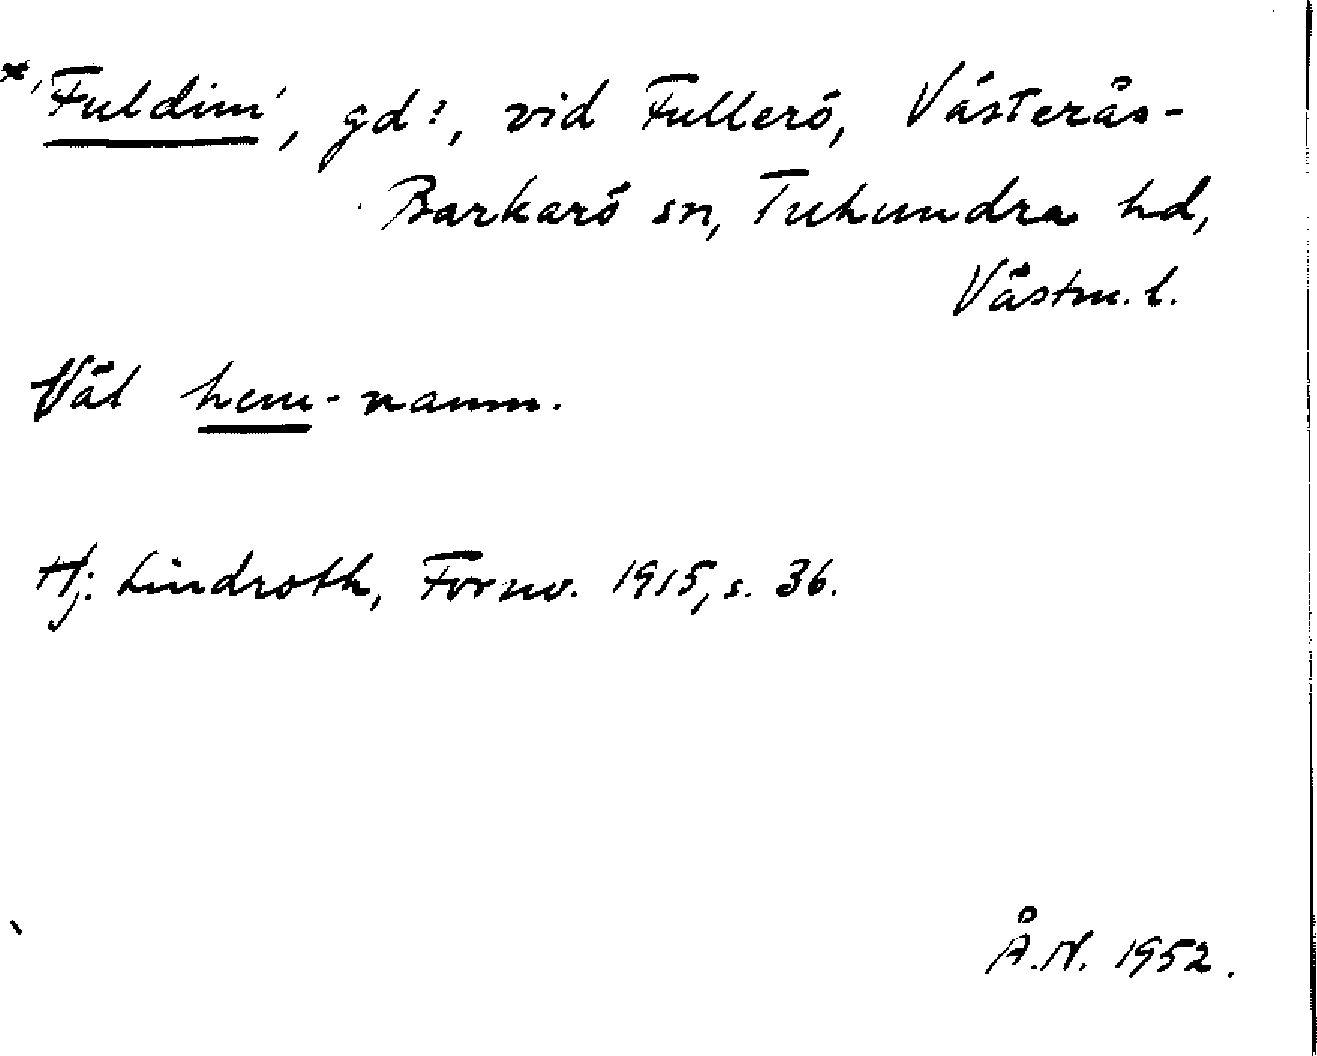 *'Fuldim', gd?, vid Fullerö, Västerås-
Barkarö sn, Tuhundra hd,
Västm. l.
Väl hem-namn.
Hj. Lindroth, Fornv. 1915, s. 36.
Å.N. 1952.